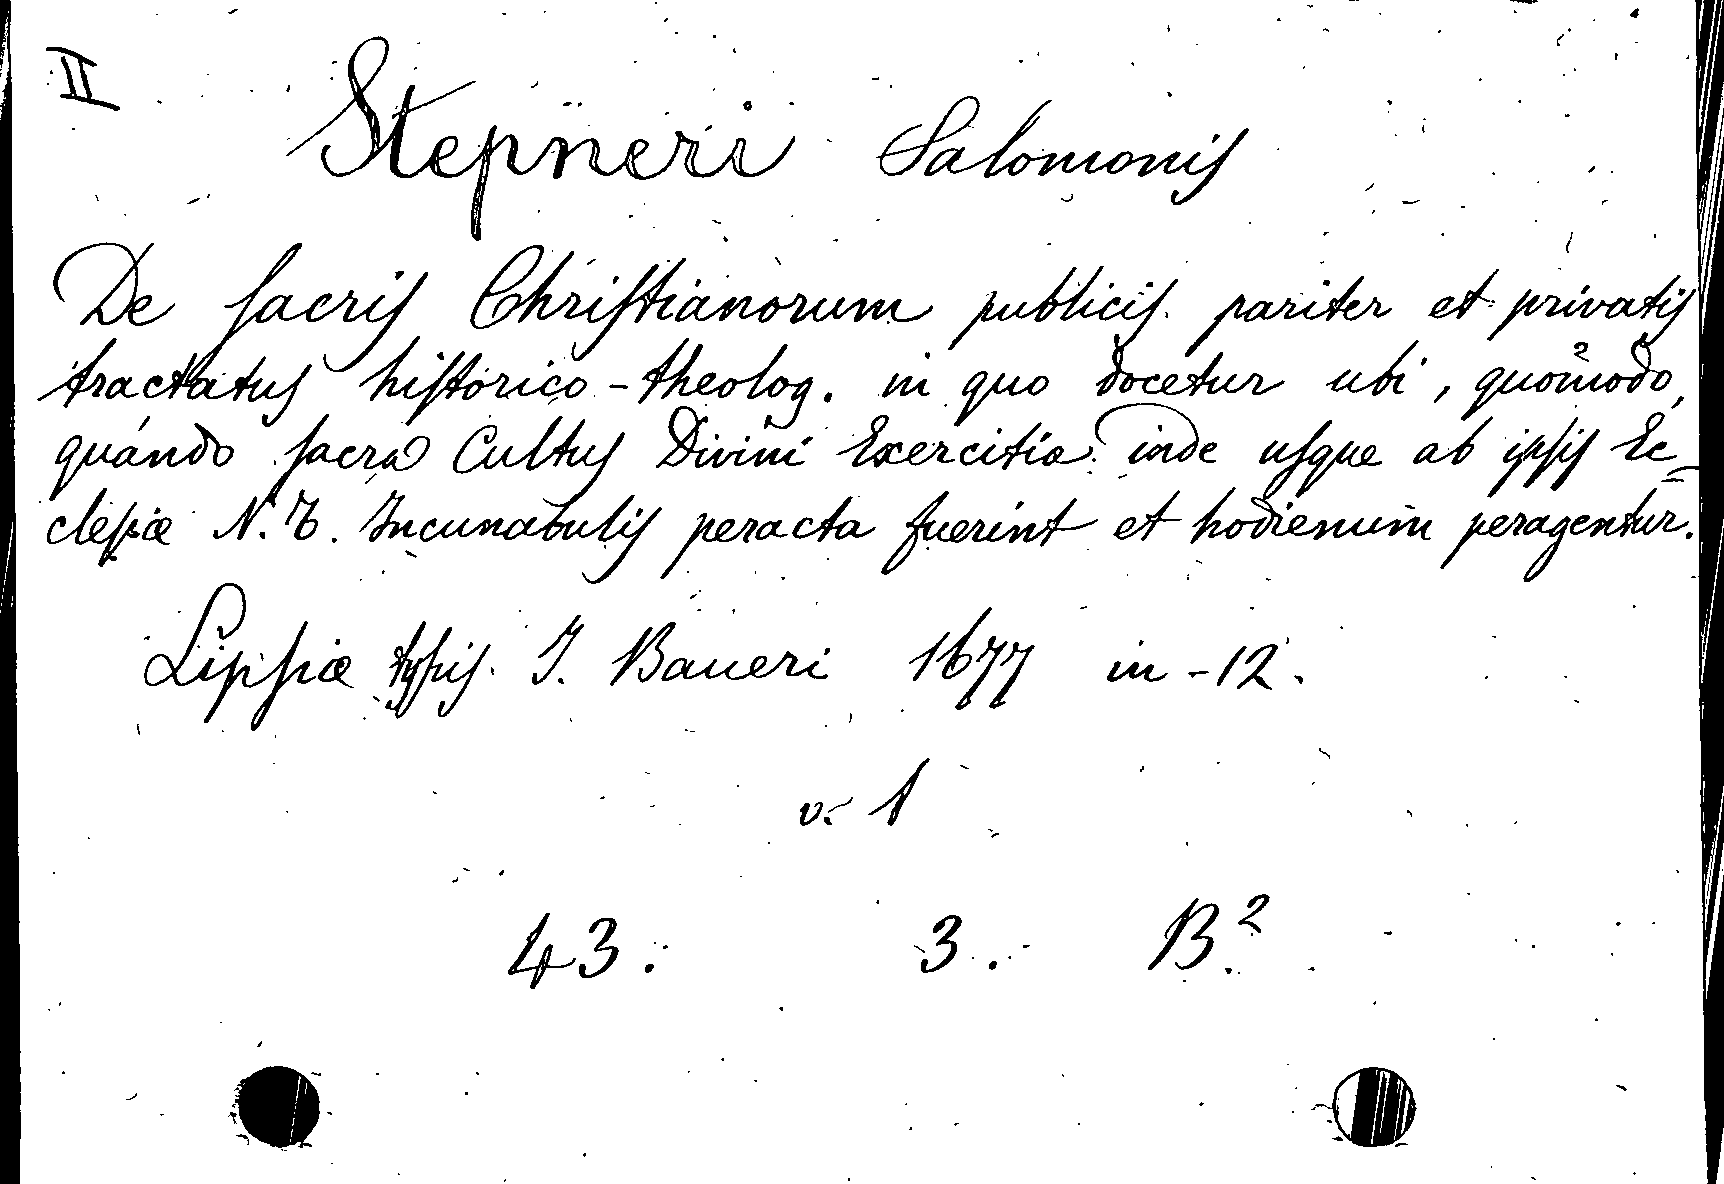 II
Stepneri Salomonis
De sacris Christianorum publicis pariter et privatis
tractatus historico-theolog. in quo docetur ubi, quomodo,
quando sacra Cultus Divini Exercitia inde usque ab ipsis Ec=
clesiæ N. T. Incunabulis peracta fuerint et hodienum peragentur.
Lipsiæ typis J. Baueri 1677 in-12.
v. 1
43. 3. B.²